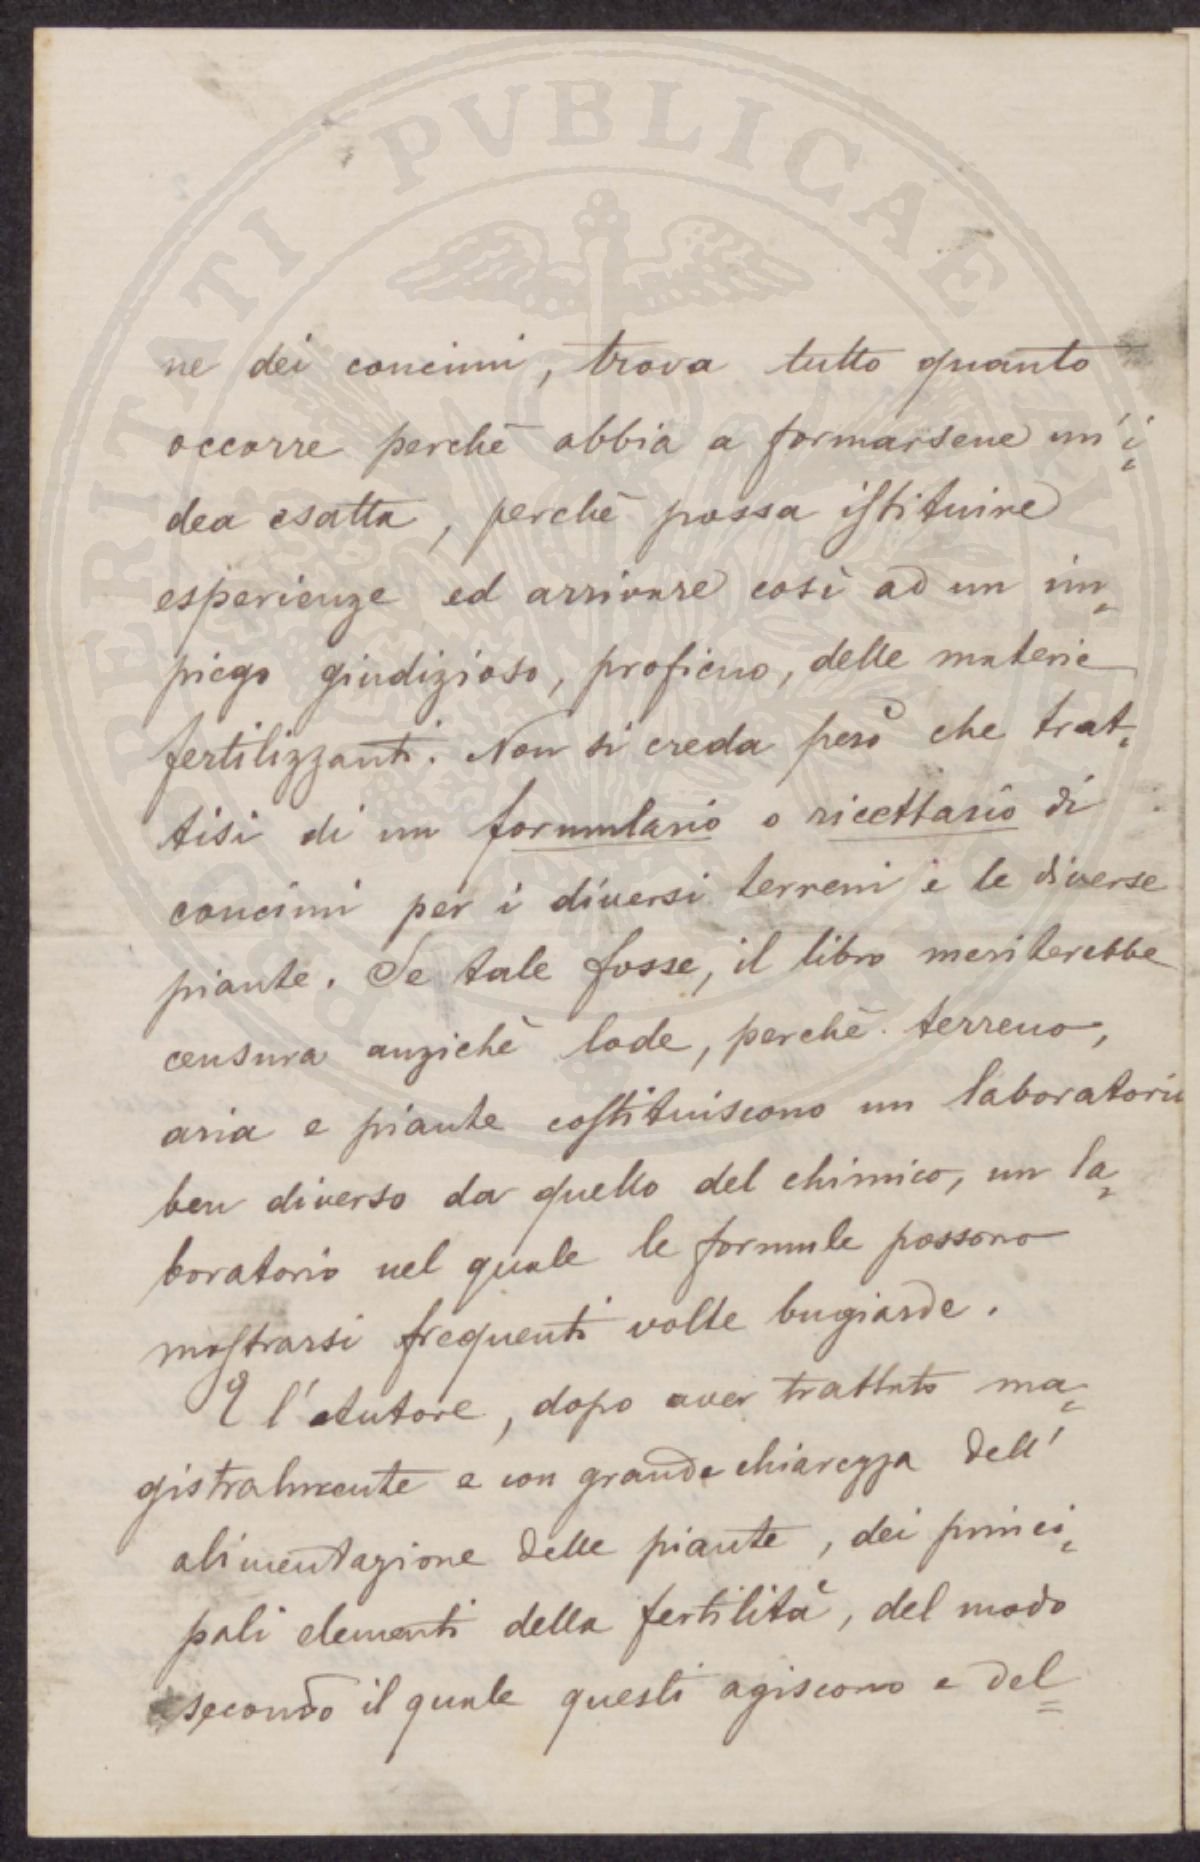 PROSPERITATI PVBLICAE AVGENDAE
ne dei concimi, trova tutto quanto
occorre perchè abbia a formarsene un'i=
dea esatta, perchè possa istituire
esperienze ed arrivare così ad un im=
piego giudizioso, proficuo, delle materie
fertilizzanti. Non si creda però che trat=
tisi di un formulario o ricettario di
concimi per i diversi terreni e le diverse
piante. Se tale fosse, il libro meriterebbe
censura anzichè lode, perchè terreno,
aria e piante costituiscono un laboratorio
ben diverso da quello del chimico, un la=
boratorio nel quale le formule possono
mostrarsi frequenti volte bugiarde.
E l'Autore, dopo aver trattato ma=
gistralmente e con grande chiarezza dell'
alimentazione delle piante, dei princi=
pali elementi della fertilità, del modo
secondo il quale questi agiscono e del=